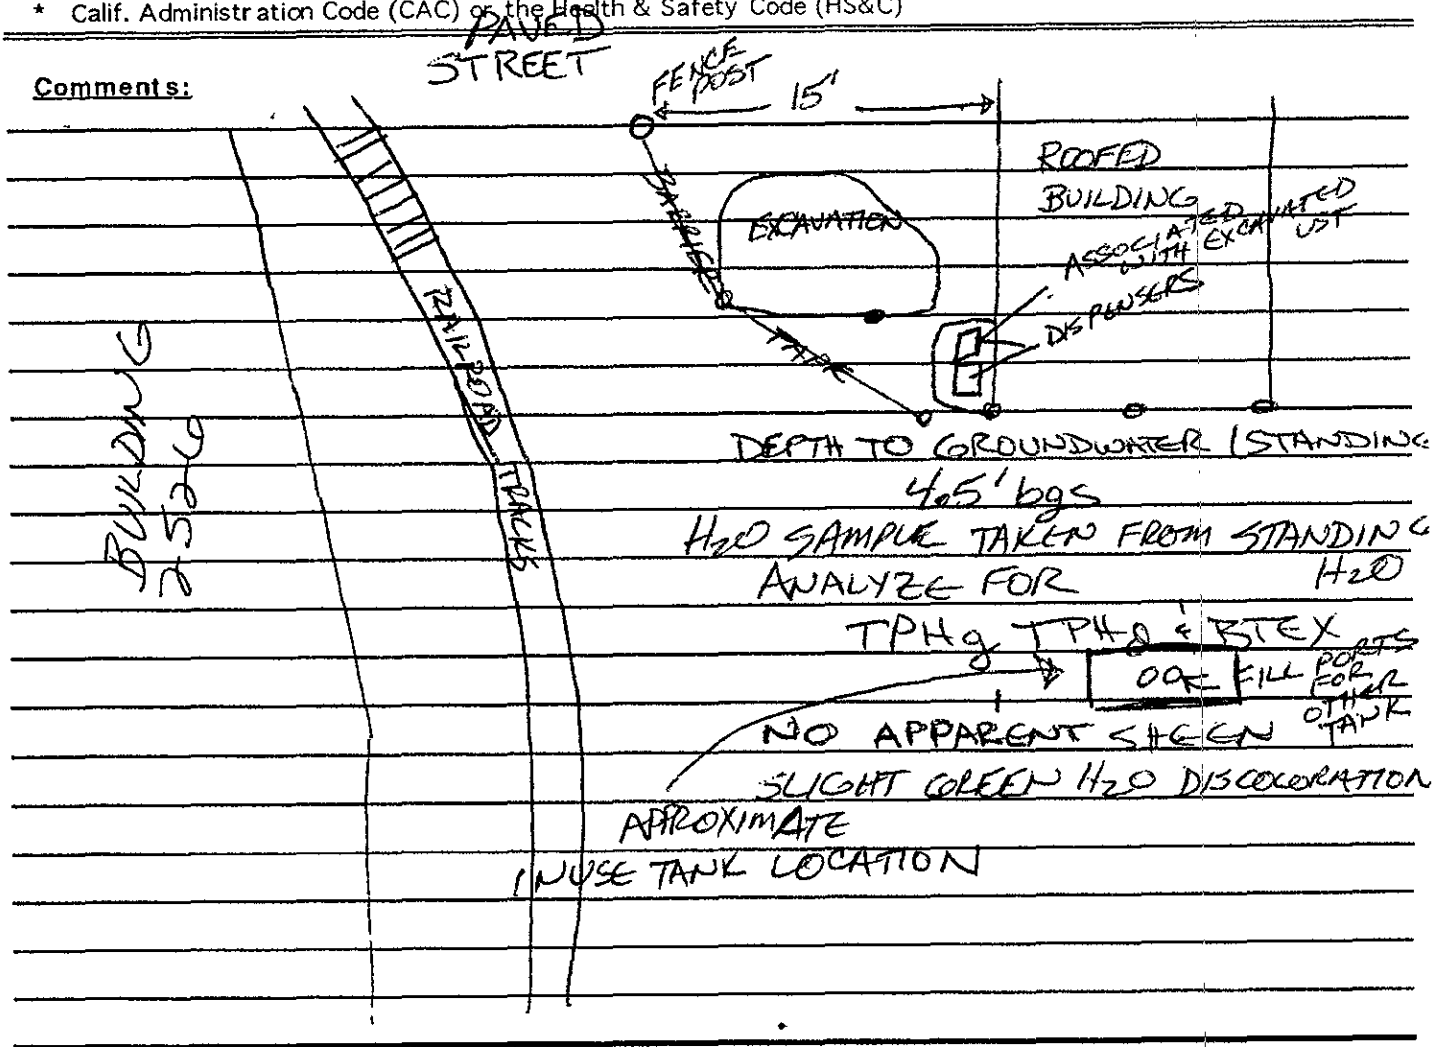 * Calif. Administration Code (CAC) or the Health & Safety Code (HS&C)
PAVED
STREET
Comments:
FENCE
POST
15'
ROOFED
BUILDING
EXCAVATION
BARRIER
ASSOCIATED
WITH EXCAVATED
UST
DISPENSERS
TAPE
RAILROAD TRACKS
BUILDING
2526
DEPTH TO GROUNDWATER (STANDING
4.5' bgs
H2O SAMPLE TAKEN FROM STANDING
H2O
ANALYZE FOR
TPHg TPHd & BTEX
FILL PORTS
FOR
OTHER
TANK
NO APPARENT SHEEN
SLIGHT GREEN H2O DISCOLORATION
APPROXIMATE
INUSE TANK LOCATION